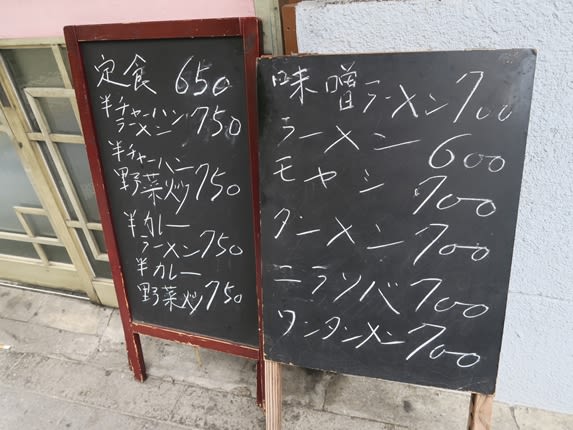 定食 650
半チャーハン
ラーメン 750
半チャーハン
野菜炒 750
半カレー
ラーメン 750
半カレー
野菜炒 750
味噌ラーメン 700
ラーメン 600
モヤシ 700
タンメン 700
ニラソバ 700
ワンタンメン 700